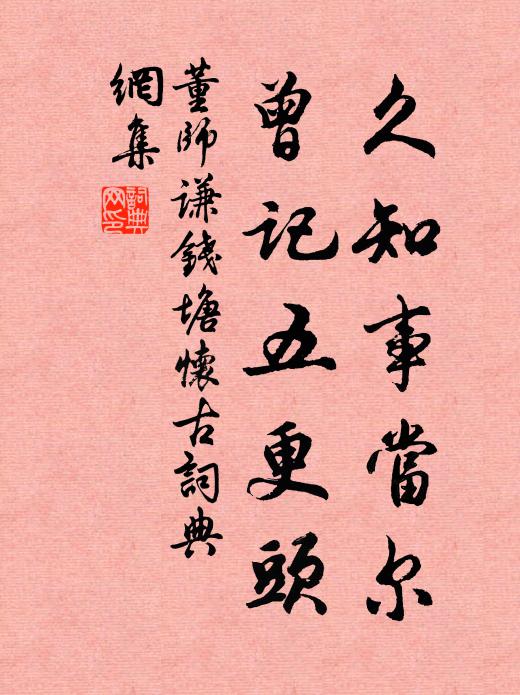 久知事當尔
曾记五更頭
董師谦錢塘懷古詞典
網集
詞典
网印